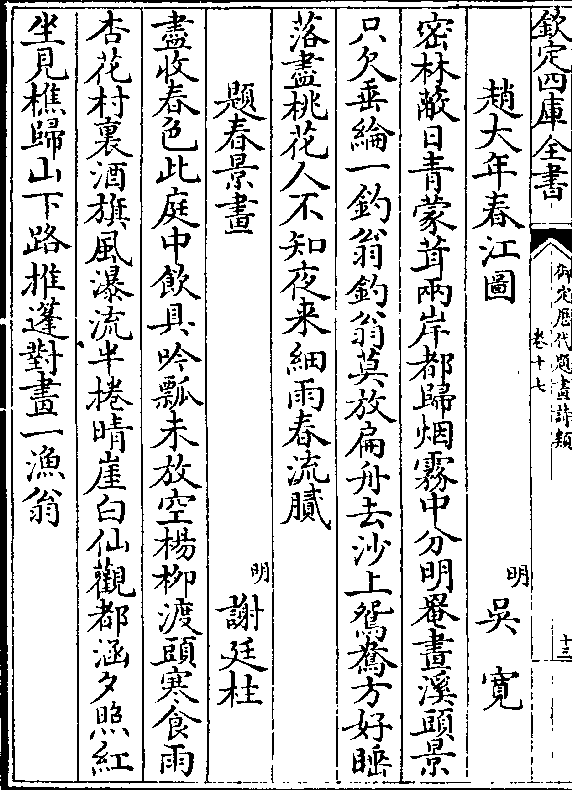 欽定四庫全書
御定歷代題畫詩類
卷十七
十三
趙大年春江圖
明
吳寬
密林蔽日青蒙茸兩岸都歸烟霧中分明罨畫溪頭景
只欠垂綸一釣翁釣翁莫放扁舟去沙上鴛鴦方好睡
落盡桃花人不知夜来細雨春流膩
題春景畫
明
謝廷柱
盡收春色此庭中飲具吟瓢未放空楊柳渡頭寒食雨
杏花村裏酒旗風瀑流半捲晴崖白仙觀都涵夕照紅
坐見樵歸山下路推篷對畫一漁翁